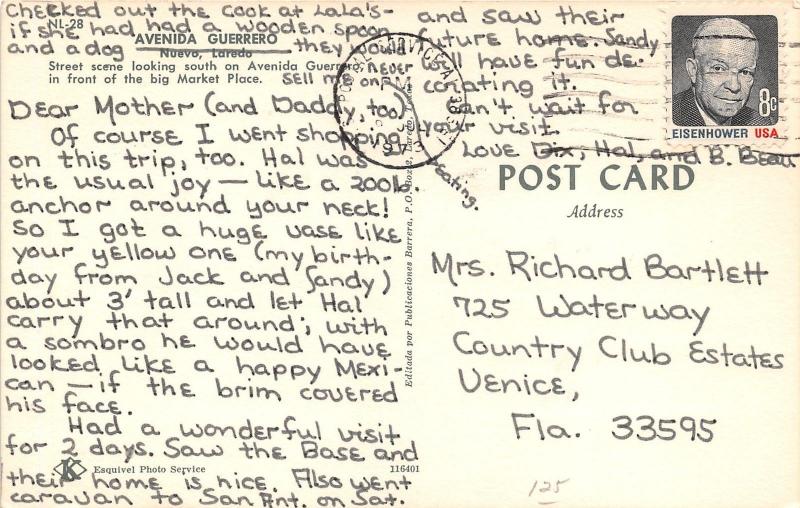 Checked out the cook at LaLa's-
if she had had a wooden spoon
and a dog they would
never
sell me on
eating.
NL-28
AVENIDA GUERRERO
Nuevo, Laredo
Street scene looking south on Avenida Guerrero
in front of the big Market Place.
Dear Mother (and Daddy, too),
Of course I went shopping
on this trip, too. Hal was
the usual joy — like a 200 lb.
anchor around your neck!
So I got a huge vase like
your yellow one (my birth-
day from Jack and Sandy)
about 3' tall and let Hal
carry that around; with
a sombro he would have
looked like a happy Mexi-
can — if the brim covered
his face.
Had a wonderful visit
for 2 days. Saw the Base and
their home is nice. Also went
caravan to San Ant. on Sat.
and saw their
future home. Sandy
will have fun de-
corating it.
Can't wait for
your visit.
Love Dix, Hal, and B. Beau
K
Esquivel Photo Service
116401
Editada por Publicaciones Barrera, P.O. Box Laredo,
8c
EISENHOWER USA
POST CARD
Address
Mrs. Richard Bartlett
725 Waterway
Country Club Estates
Venice,
Fla. 33595
125